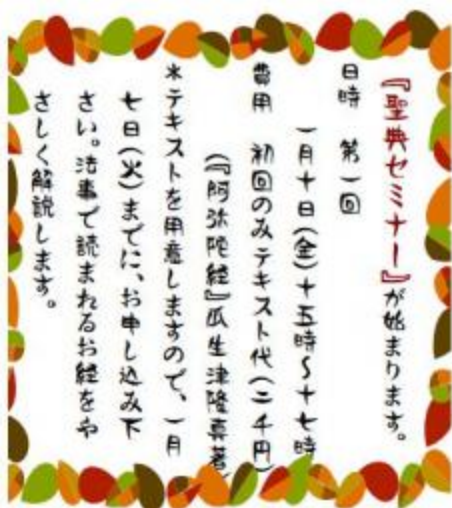 『聖典セミナー』が始まります。
日時　第一回
一月十日(金)十五時〜十七時
費用　初回のみテキスト代(二千円)
(『阿弥陀経』瓜生津隆真著)
*テキストを用意しますので、一月
七日(火)までに、お申し込み下
さい。法事で読まれるお経をや
さしく解説します。